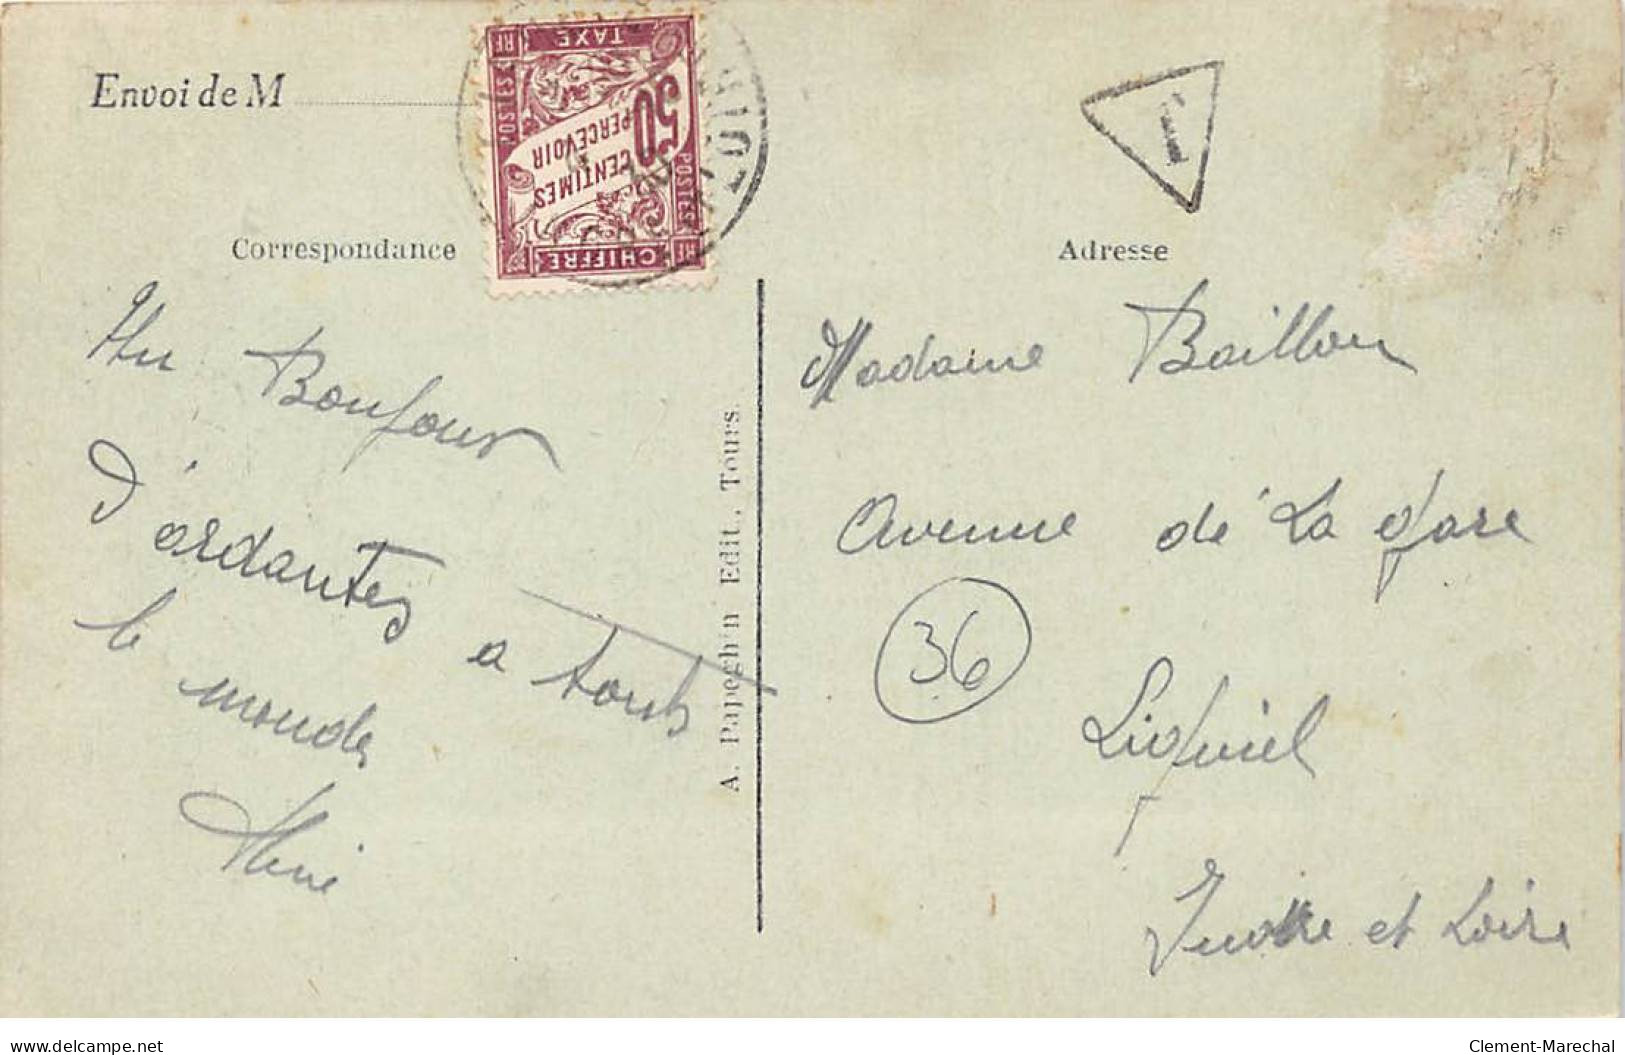 Envoi de M
Correspondance
Un Bonjour
d'ardantes a touts
le monde
RF TAXE
POSTES
50
CENTIMES
PERCEVOIR
POSTES
CHIFFRE RF
A. Papeghin Edit., Tours.
T
Adresse
Madame Baillou
Avenue de La Gare
36
Ligueil
Indre et Loire
www.delcampe.net
Clement-Marechal